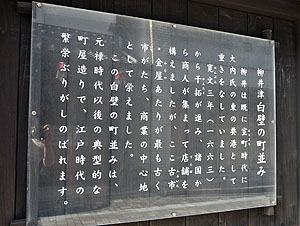 柳井津白壁の町並み
柳井は既に室町時代に
大内氏の東の要港として
重きをなしていました。
寛文三年(一六六三)
から干拓が進み、諸国か
ら商人が集まって店舗を
構えましたが、ここ古市
・金屋あたりが最も古く
市がたち、商業の中心地
として栄えました。
この白壁の町並みは、
元禄時代以後の典型的な
町屋造りで、江戸時代の
繁栄ぶりがしのばれます。